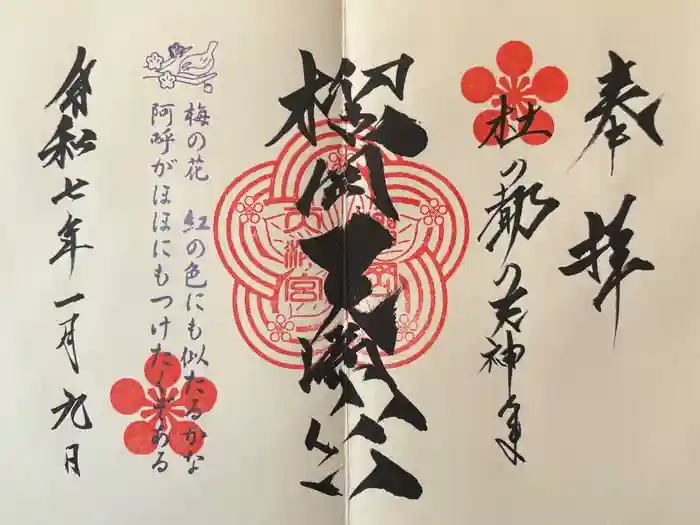 奉拝
杜の都の天神さま
榴岡天満宮
榴岡
天満宮
梅の花　紅の色にも似たるかな
阿呼がほほにもつけたくぞある
令和七年一月九日